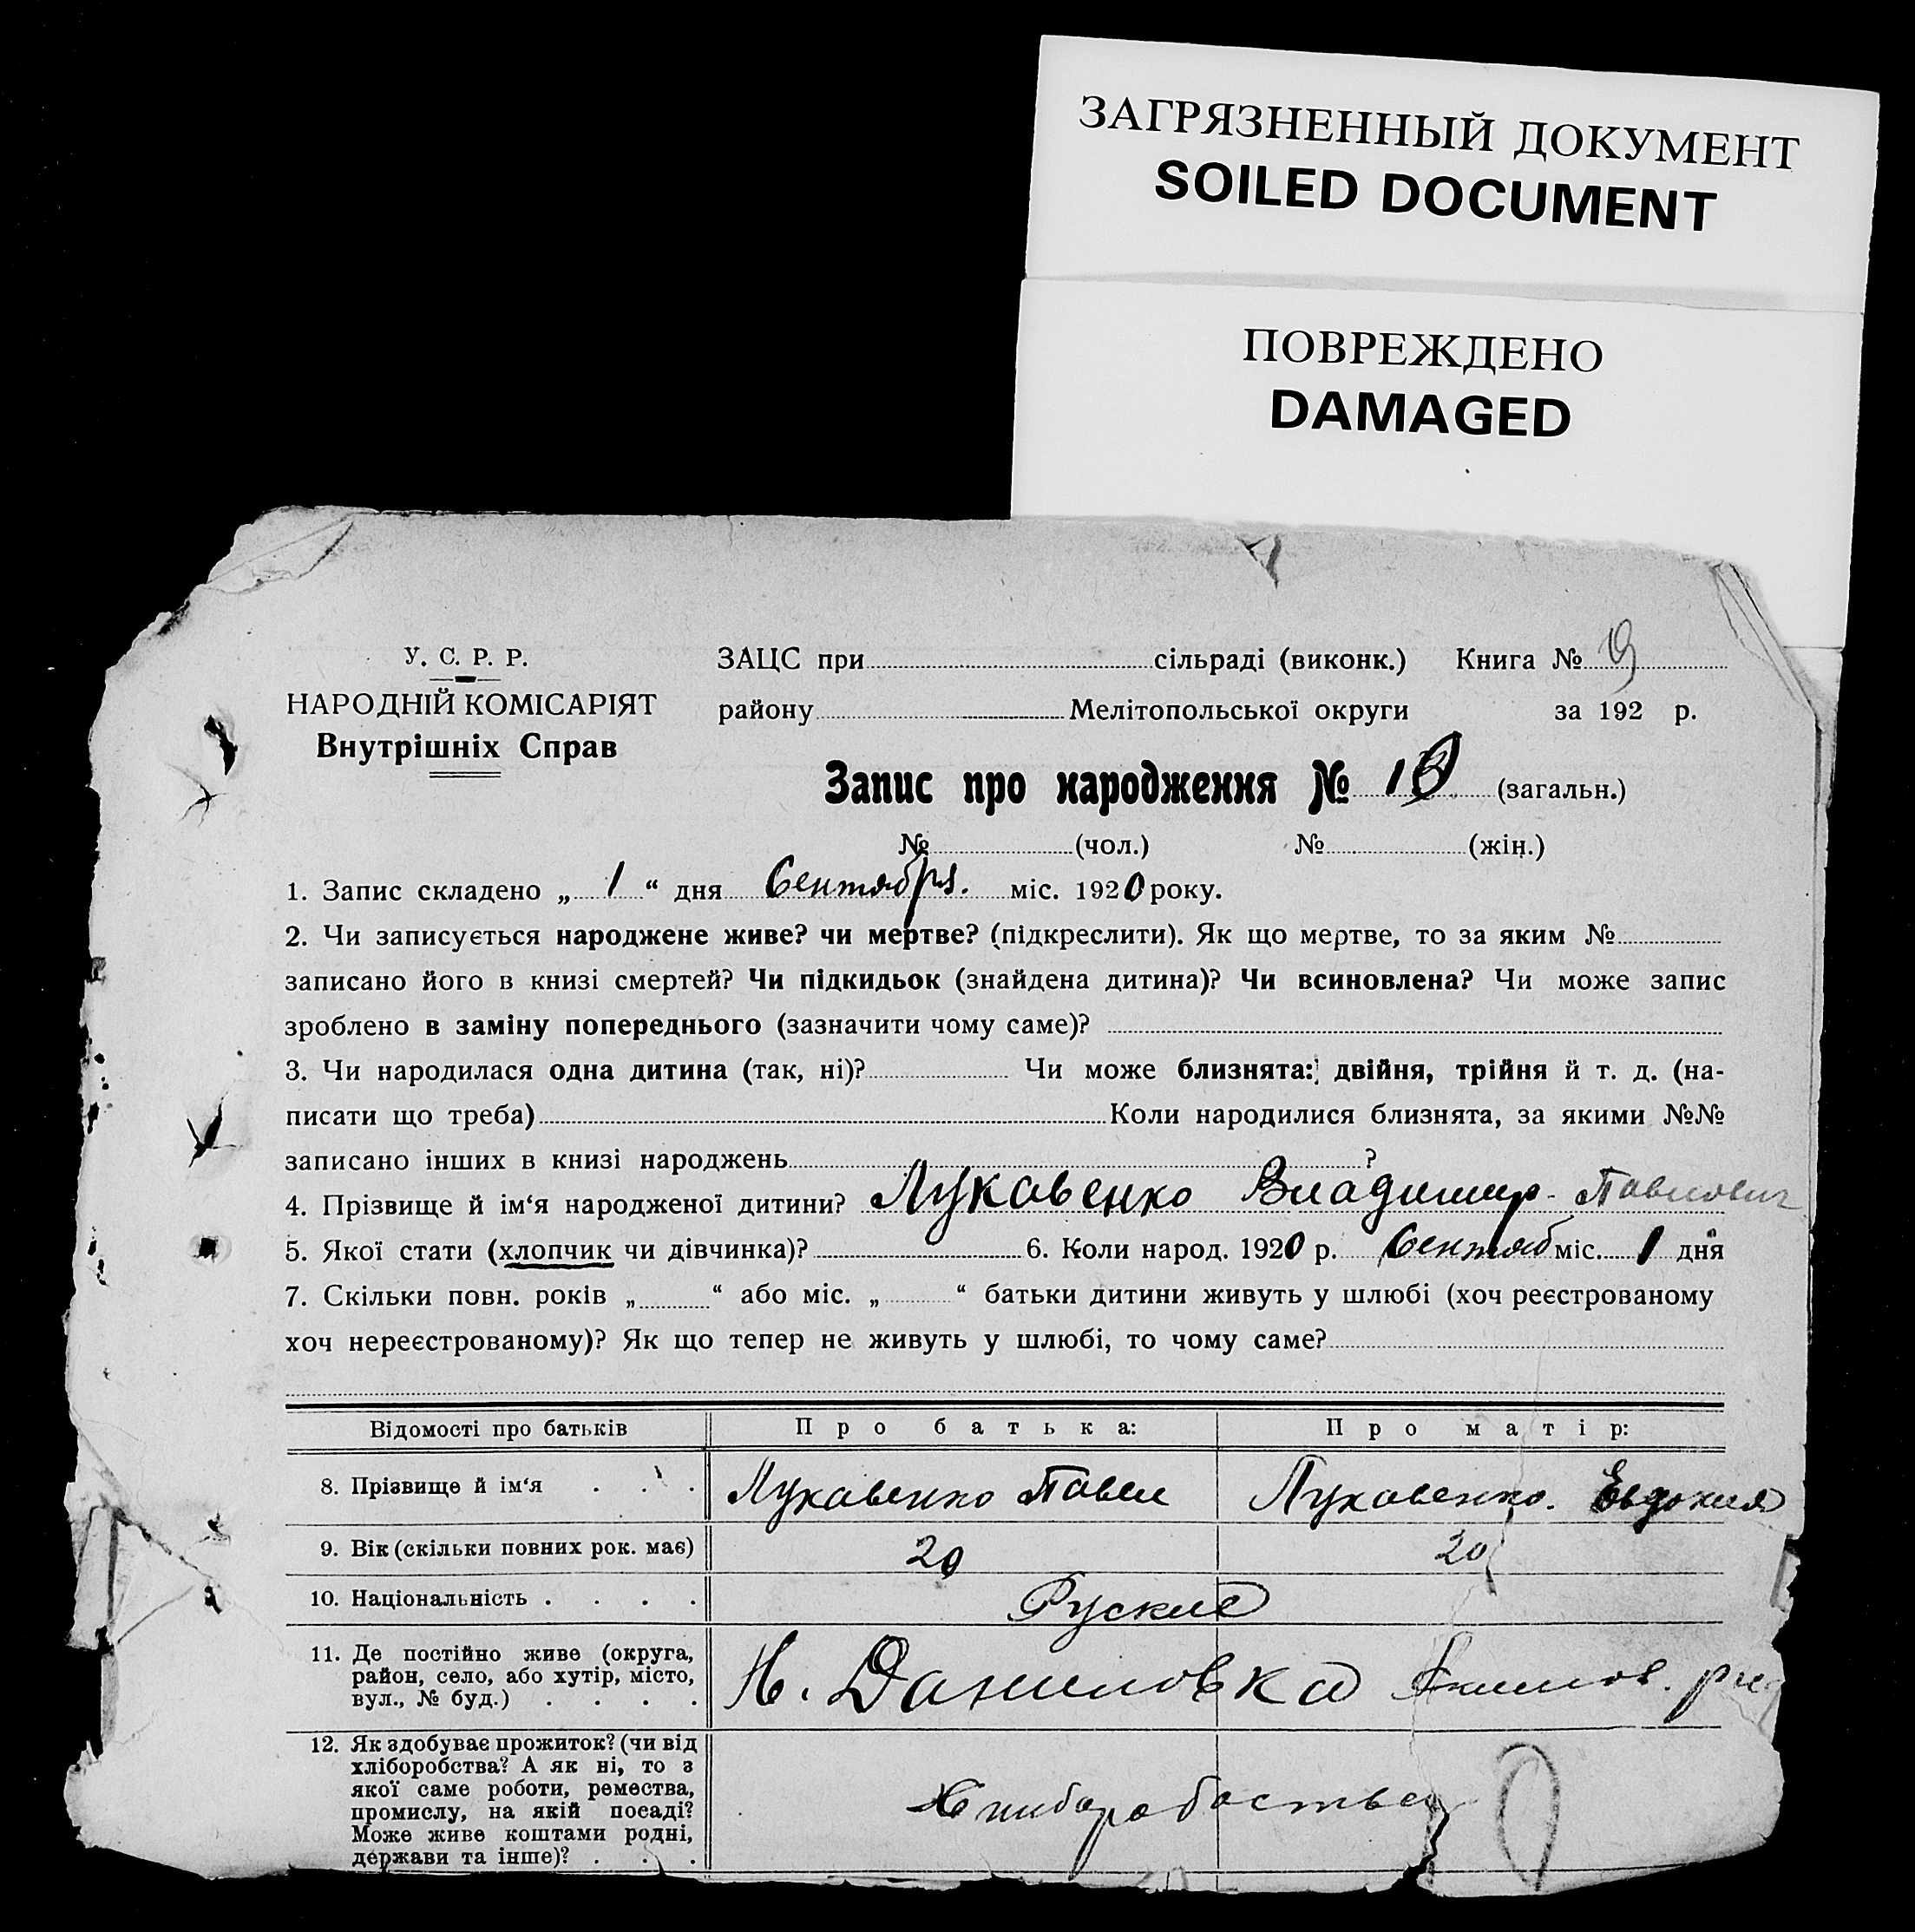 ЗАГРЯЗНЕННЫЙ ДОКУМЕНТ
SOILED DOCUMENT
ПОВРЕЖДЕНО
DAMAGED
У. С. Р. Р.
НАРОДНІЙ КОМІСАРІЯТ
Внутрішніх Справ
ЗАЦС при сільраді (виконк.) Книга № 9
району Мелітопольської округи за 192 р.
Запис про народження № (загальн.)
№ (чол.) № (жін.)
1. Запис складено „ 1 “ дня Сентября. міс. 1920 року.
2. Чи записується народжене живе? чи мертве? (підкреслити). Як що мертве, то за яким №
записано його в книзі смертей? Чи підкидьок (знайдена дитина)? Чи всиновлена? Чи може запис
зроблено в заміну попереднього (зазначити чому саме)?
3. Чи народилася одна дитина (так, ні)? Чи може близнята: двійня, трійня й т. д. (на-
писати що треба) Коли народилися близнята, за якими №№
записано інших в книзі народжень ?
4. Прізвище й ім‘я народженої дитини? Лукавенко Владимир Павлович
5. Якої стати (хлопчик чи дівчинка)? 6. Коли народ. 1920 р. Сентяб міс. 1 дня
7. Скільки повн. років „ “ або міс. „ “ батьки дитини живуть у шлюбі (хоч реєстрованому
хоч нереєстрованому)? Як що тепер не живуть у шлюбі, то чому саме?
Відомості про батьків Про батька: Про матір:
8. Прізвище й ім‘я . . . Лукавенко Павел Лукавенко. Евдокия
9. Вік (скільки повних рок. має) 20 20
10. Національність . . . . Руские
11. Де постійно живе (округа,
район, село, або хутір, місто,
вул., № буд.) . . . . Н. Даниловка Акимов.
12. Як здобуває прожиток? (чи від
хліборобства? А як ні, то з
якої саме роботи, ремества,
промислу, на якій посаді?
Може живе коштами родні,
держави та інше)? . . .